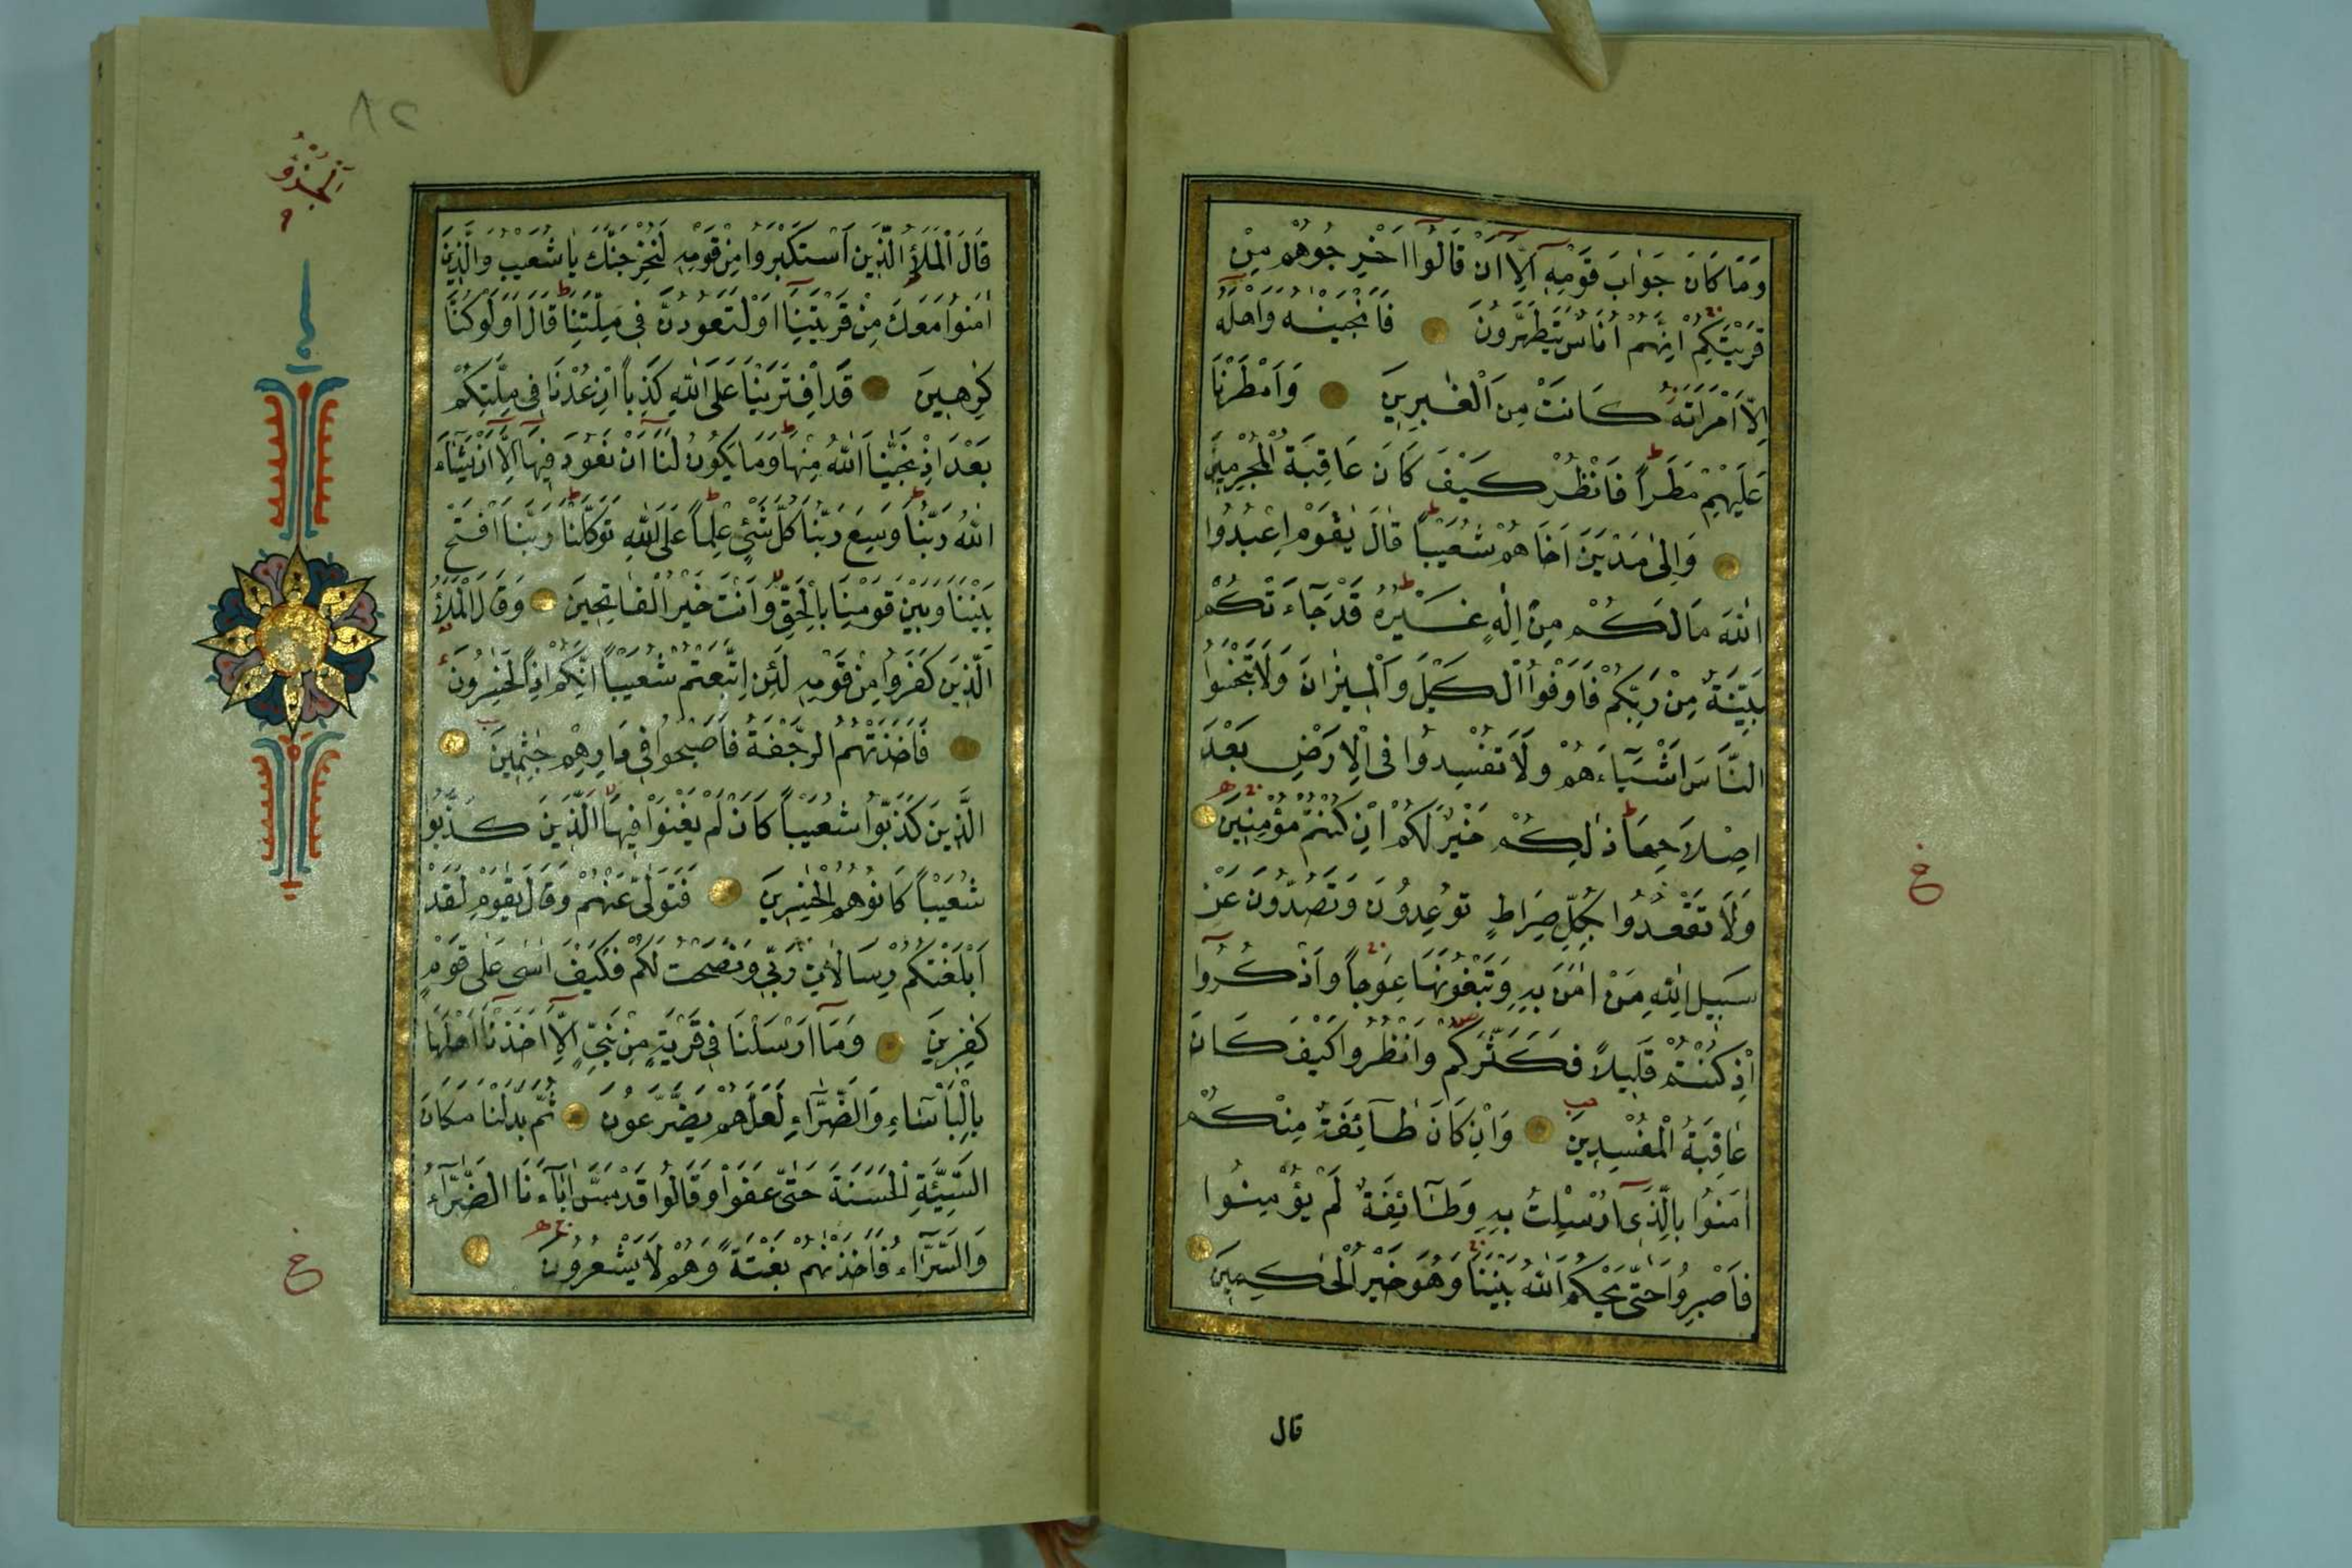 وَمَا كَانَ جَوَابَ قَوْمِهِ اِلَّا اَنْ قَالُوا اَخْرِجُوهُمْ مِنْ
قَرْيَتِكُمْ اِنَّهُمْ اُنَاسٌ يَتَطَهَّرُونَ فَاَنْجَيْنٰهُ وَاَهْلَهُ
اِلَّا امْرَاَتَهُ كَانَتْ مِنَ الْغٰبِرِينَ وَاَمْطَرْنَا
عَلَيْهِمْ مَطَراً فَانْظُرْ كَيْفَ كَانَ عَاقِبَةُ الْمُجْرِمِينَ
وَاِلٰى مَدْيَنَ اَخَاهُمْ شُعَيْباً قَالَ يٰقَوْمِ اعْبُدُوا
اللّٰهَ مَا لَكُمْ مِنْ اِلٰهٍ غَيْرُهُ قَدْ جَآءَتْكُمْ
بَيِّنَةٌ مِنْ رَبِّكُمْ فَاَوْفُوا الْكَيْلَ وَالْمِيزَانَ وَلَا تَبْخَسُوا
النَّاسَ اَشْيَآءَهُمْ وَلَا تُفْسِدُوا فِى الْاَرْضِ بَعْدَ
اِصْلَاحِهَا ذٰلِكُمْ خَيْرٌ لَكُمْ اِنْ كُنْتُمْ مُؤْمِنِينَ
وَلَا تَقْعُدُوا بِكُلِّ صِرَاطٍ تُوعِدُونَ وَتَصُدُّونَ عَنْ
سَبِيلِ اللّٰهِ مَنْ اٰمَنَ بِهِ وَتَبْغُونَهَا عِوَجاً وَاذْكُرُوا
اِذْ كُنْتُمْ قَلِيلاً فَكَثَّرَكُمْ وَانْظُرُوا كَيْفَ كَانَ
عَاقِبَةُ الْمُفْسِدِينَ وَاِنْ كَانَ طَآئِفَةٌ مِنْكُمْ
اٰمَنُوا بِالَّذِى اُرْسِلْتُ بِهِ وَطَآئِفَةٌ لَمْ يُؤْمِنُوا
فَاصْبِرُوا حَتّٰى يَحْكُمَ اللّٰهُ بَيْنَنَا وَهُوَ خَيْرُ الْحٰكِمِينَ
قال
خ
٨٢
اَلْجُزْؤُ
٩
قَالَ الْمَلَاُ الَّذِينَ اسْتَكْبَرُوا مِنْ قَوْمِهِ لَنُخْرِجَنَّكَ يَا شُعَيْبُ وَالَّذِينَ
اٰمَنُوا مَعَكَ مِنْ قَرْيَتِنَا اَوْ لَتَعُودُنَّ فِى مِلَّتِنَا قَالَ اَوَلَوْ كُنَّا
كٰرِهِينَ قَدِ افْتَرَيْنَا عَلَى اللّٰهِ كَذِباً اِنْ عُدْنَا فِى مِلَّتِكُمْ
بَعْدَ اِذْ نَجّٰينَا اللّٰهُ مِنْهَا وَمَا يَكُونُ لَنَا اَنْ نَعُودَ فِيهَا اِلَّا اَنْ يَشَآءَ
اللّٰهُ رَبُّنَا وَسِعَ رَبُّنَا كُلَّ شَىْءٍ عِلْماً عَلَى اللّٰهِ تَوَكَّلْنَا رَبَّنَا افْتَحْ
بَيْنَنَا وَبَيْنَ قَوْمِنَا بِالْحَقِّ وَاَنْتَ خَيْرُ الْفَاتِحِينَ وَقَالَ الْمَلَاُ
الَّذِينَ كَفَرُوا مِنْ قَوْمِهِ لَئِنِ اتَّبَعْتُمْ شُعَيْباً اِنَّكُمْ اِذاً لَخٰسِرُونَ
فَاَخَذَتْهُمُ الرَّجْفَةُ فَاَصْبَحُوا فِى دَارِهِمْ جٰثِمِينَ
الَّذِينَ كَذَّبُوا شُعَيْباً كَاَنْ لَمْ يَغْنَوْا فِيهَا الَّذِينَ كَذَّبُوا
شُعَيْباً كَانُوا هُمُ الْخٰسِرِينَ فَتَوَلّٰى عَنْهُمْ وَقَالَ يٰقَوْمِ لَقَدْ
اَبْلَغْتُكُمْ رِسَالَاتِ رَبِّى وَنَصَحْتُ لَكُمْ فَكَيْفَ اٰسٰى عَلٰى قَوْمٍ
كٰفِرِينَ وَمَآ اَرْسَلْنَا فِى قَرْيَةٍ مِنْ نَبِىٍّ اِلَّا اَخَذْنَا اَهْلَهَا
بِالْبَاْسَآءِ وَالضَّرَّآءِ لَعَلَّهُمْ يَضَّرَّعُونَ ثُمَّ بَدَّلْنَا مَكَانَ
السَّيِّئَةِ الْحَسَنَةَ حَتّٰى عَفَوْا وَقَالُوا قَدْ مَسَّ اٰبَآءَنَا الضَّرَّآءُ
وَالسَّرَّآءُ فَاَخَذْنٰهُمْ بَغْتَةً وَهُمْ لَا يَشْعُرُونَ
خ